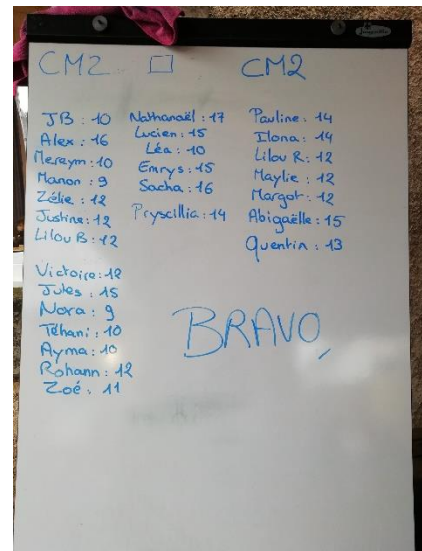 CM2 □ CM2
JB : 10
Alex : 16
Mereym : 10
Manon : 9
Zélie : 12
Justine : 12
Lilou B : 12
Victoire : 12
Jules : 15
Nora : 9
Téhani : 10
Ayma : 10
Rohann : 12
Zoé : 11
Nathanaël : 17
Lucien : 15
Léa : 10
Emrys : 15
Sacha : 16
Pryscillia : 14
Pauline : 14
Ilona : 14
Lilou R : 12
Maylie : 12
Margot : 12
Abigaëlle : 15
Quentin : 13
BRAVO